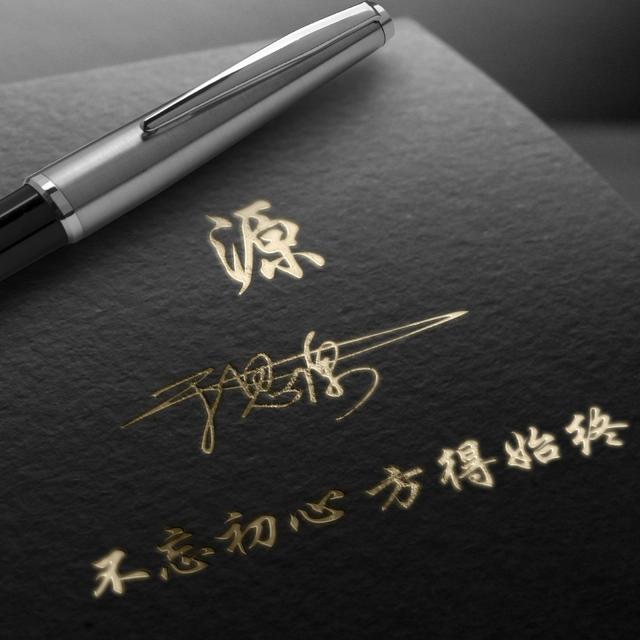 源
不忘初心 方得始终